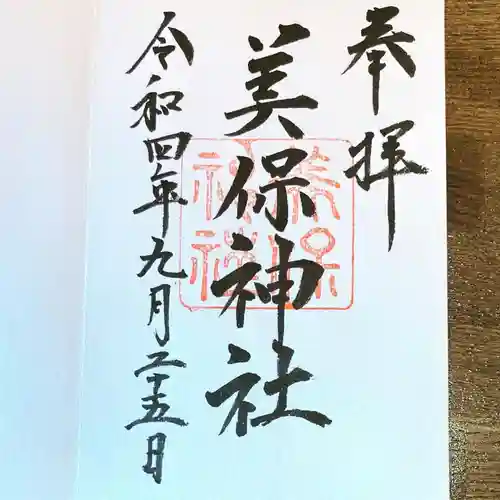 奉拝
美保神社
令和四年九月二十五日